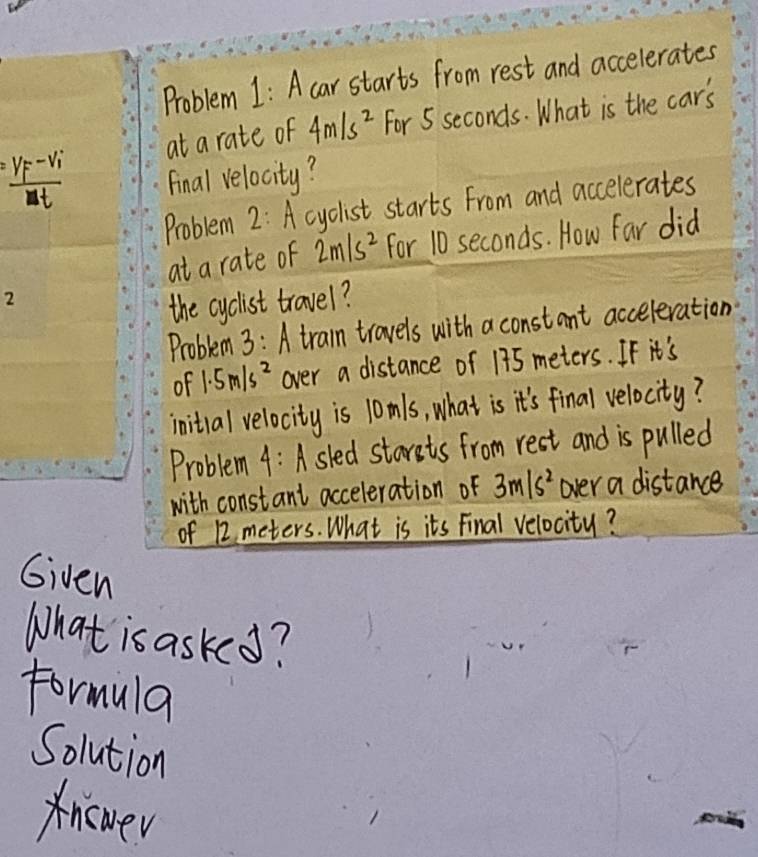 = VF - Vi
t
2
Problem 1: A car starts from rest and accelerates
at a rate of 4m/s² For 5 seconds. What is the car's
final velocity?
Problem 2: A cyclist starts From and accelerates
at a rate of 2m/s² for 10 seconds. How far did
the cyclist travel?
Problem 3: A train travels with a constant acceleration
of 1.5m/s² over a distance of 175 meters. If it's
initial velocity is 10m/s, what is it's final velocity?
Problem 4: A sled starets from rest and is pulled
with constant acceleration of 3m/s² over a distance
of 12 meters. What is its Final velocity?
Given
What is asked?
Formula
Solution
Answer